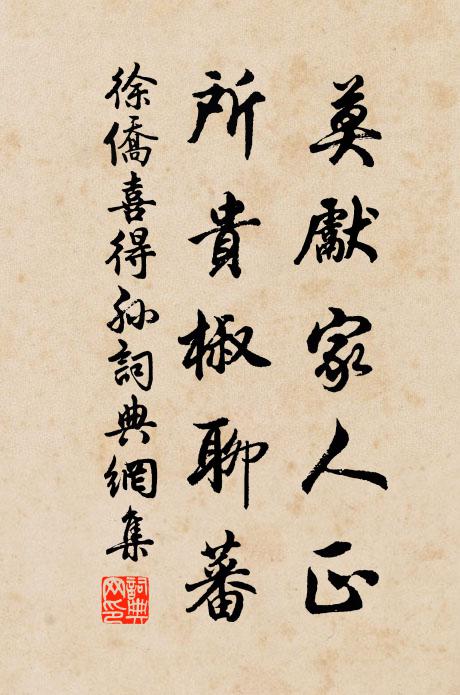 莫獻家人正
所貴椒聊蕃
徐僑喜得孙詞典網集
詞典網印